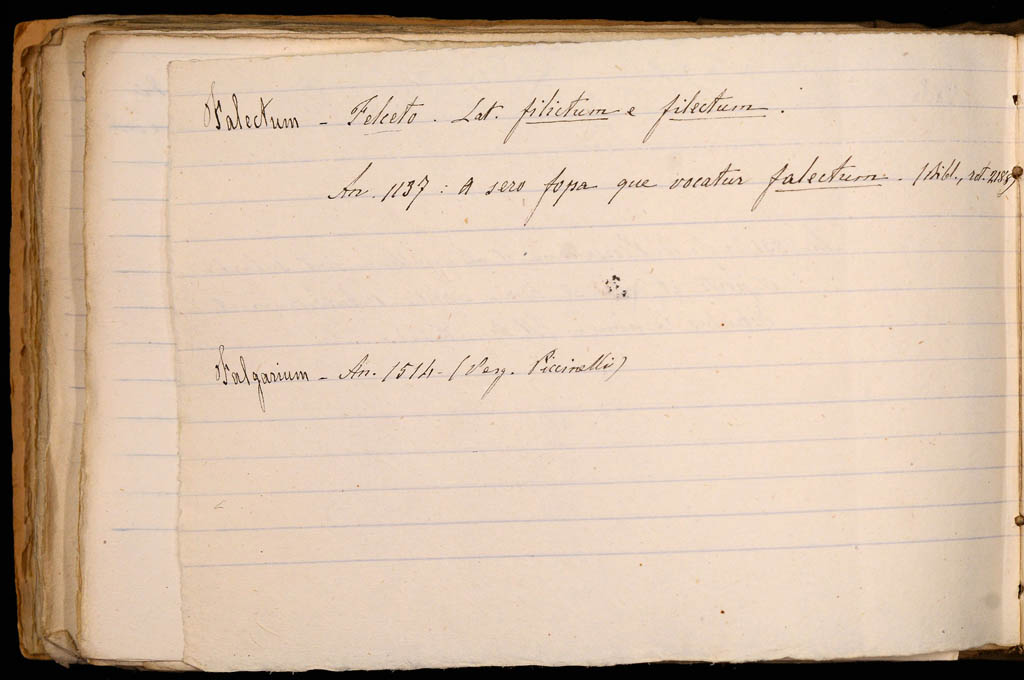 Falectum - Felceto. Lat. filictum e filectum.
An. 1137: A sero fopa que vocatur falectum. (Bibl., rot. 2188)
Falgarium - An. 1514 - (Perg. Piccinelli)